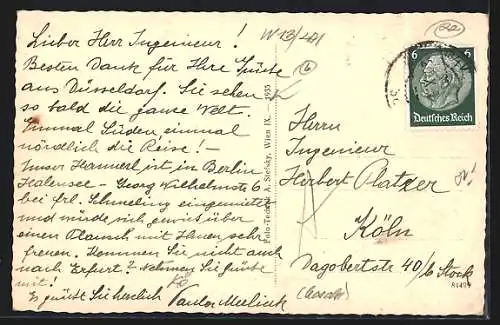 Lieber Herr Ingenieur!
Besten Dank für Ihre Grüsse
aus Düsseldorf. Sie sehen
so bald die ganze Welt.
Einmal Süden einmal
nördlich die Reise! -
Unser Hannerl ist in Berlin
Halensee - Georg Wilhelmstr 6
bei Frl. Schmeling eingemietet
und würde sich gewiss über
einen Plausch mit Ihnen sehr
freuen. Kommen Sie nicht auch
nach Erfurt? Nehmen Sie Grüsse
mit!
Es grüsst Sie herzlich
W 13/401
6
Foto-Technik A. Stefsky, Wien IX. - 1935
6 6
Deutsches Reich
Herrn
Ingenieur
Herbert Platzer
Köln
Dagobertstr 40/6 Stock